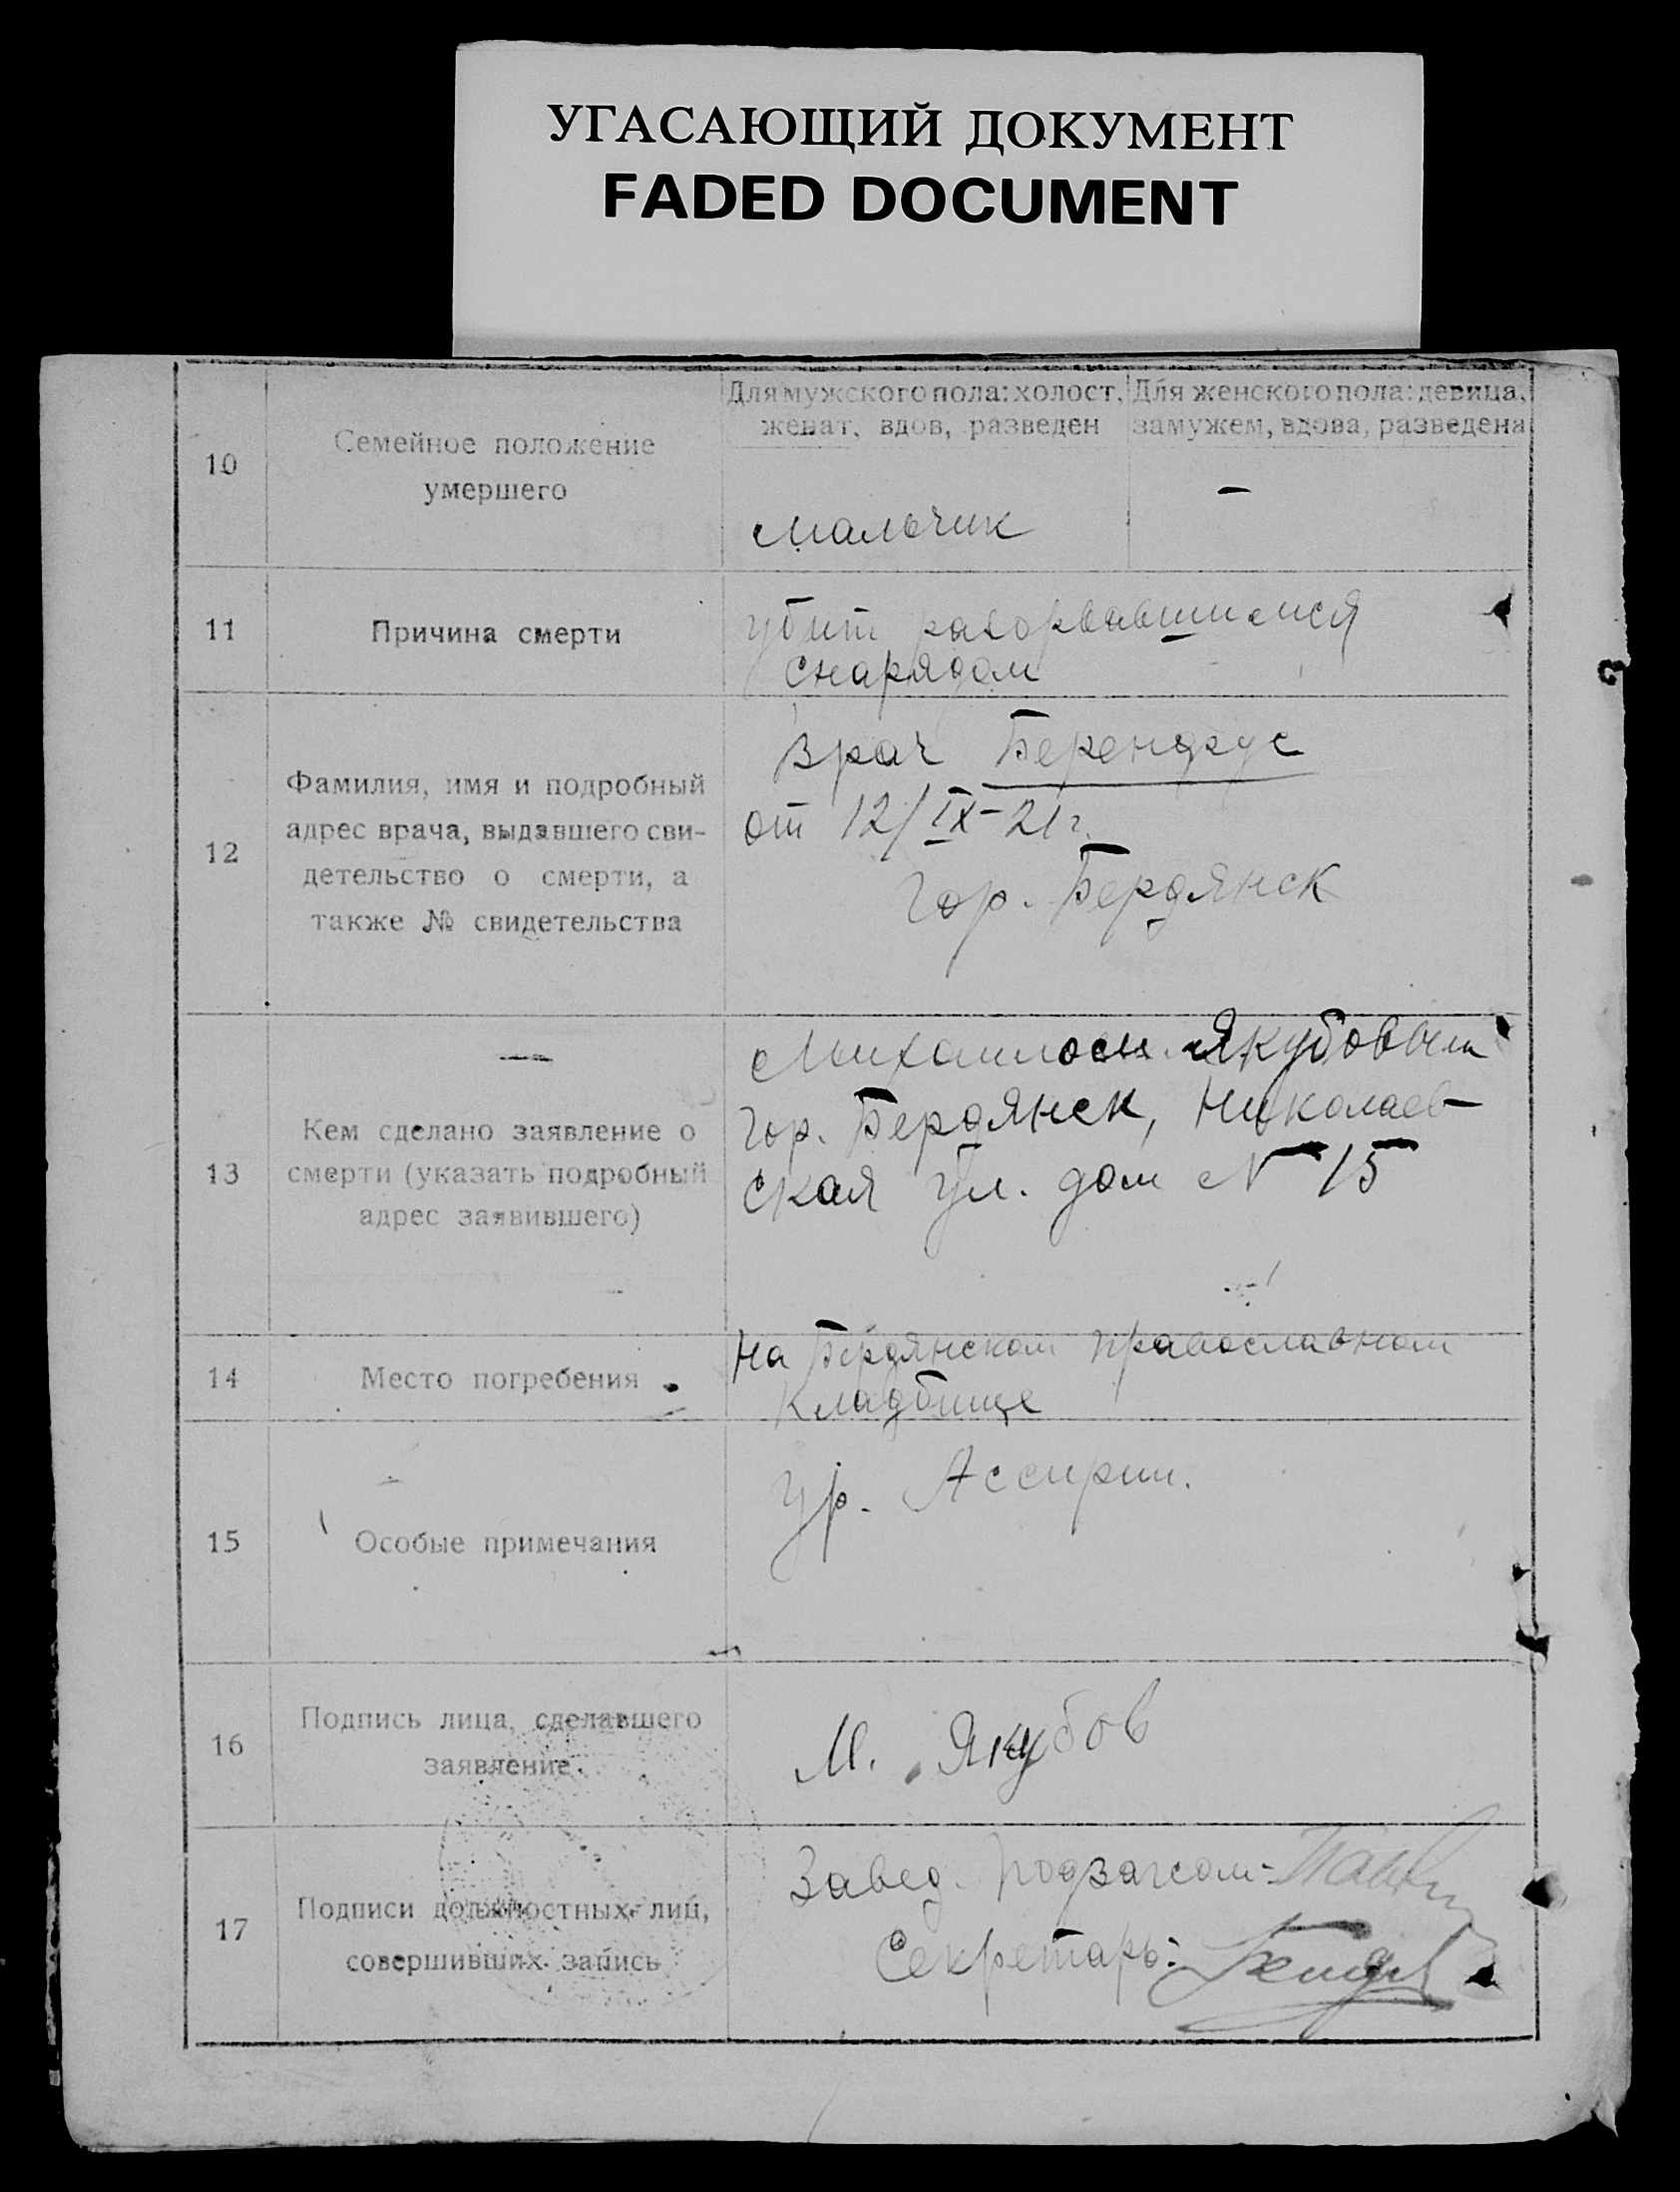 УГАСАЮЩИЙ ДОКУМЕНТ
FADED DOCUMENT
10
Семейное положение
умершего
Для мужского пола: холост,
женат, вдов, разведен
Для женского пола: девица,
замужем, вдова, разведена
мальчик
—
11
Причина смерти
убит разорвавшимся
снарядом
12
Фамилия, имя и подробный
адрес врача, выдавшего сви-
детельство о смерти, а
также № свидетельства
Врач
от 12/IX-21 г.
Гор. Бердянск
13
Кем сделано заявление о
смерти (указать подробный
адрес заявившего)
Михаилом Якубовым
гор. Бердянск, Николаев-
ская ул. дом N 15
14
Место погребения
На Бердянском православном
кладбище
15
Особые примечания
Ур. Ассирии.
16
Подпись лица, сделавшего
заявление.
М. Якубов
17
Подписи должностных лиц,
совершивших запись
Завед. Подзагсом:
Секретарь: